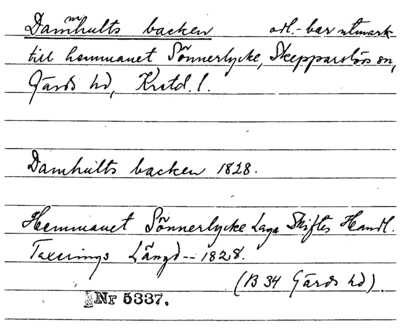 Damhults backen odl.-bar utmark
till hemmanet Sönnerlycke, Skepparslövs sn,
Gärds hd, Krstd. l.
Damhults backen 1828.
Hemmanet Sönnerlycke Laga Skiftes Handl.
Taxerings Längd -- 1828.
(B 34 Gärds hd).
Nr 5337.